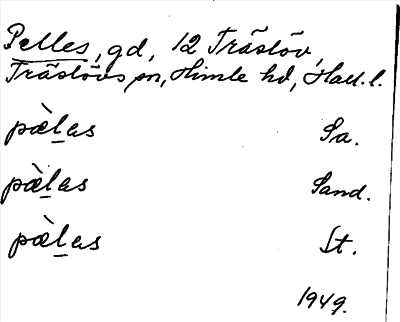 Pelles, gd, 12 Träslöv,
Träslövs sn, Himle hd, Hall. l.
pæ̀l̠as Sa.
pæ̀l̠as Sand.
pæ̀l̠as St.
1949.